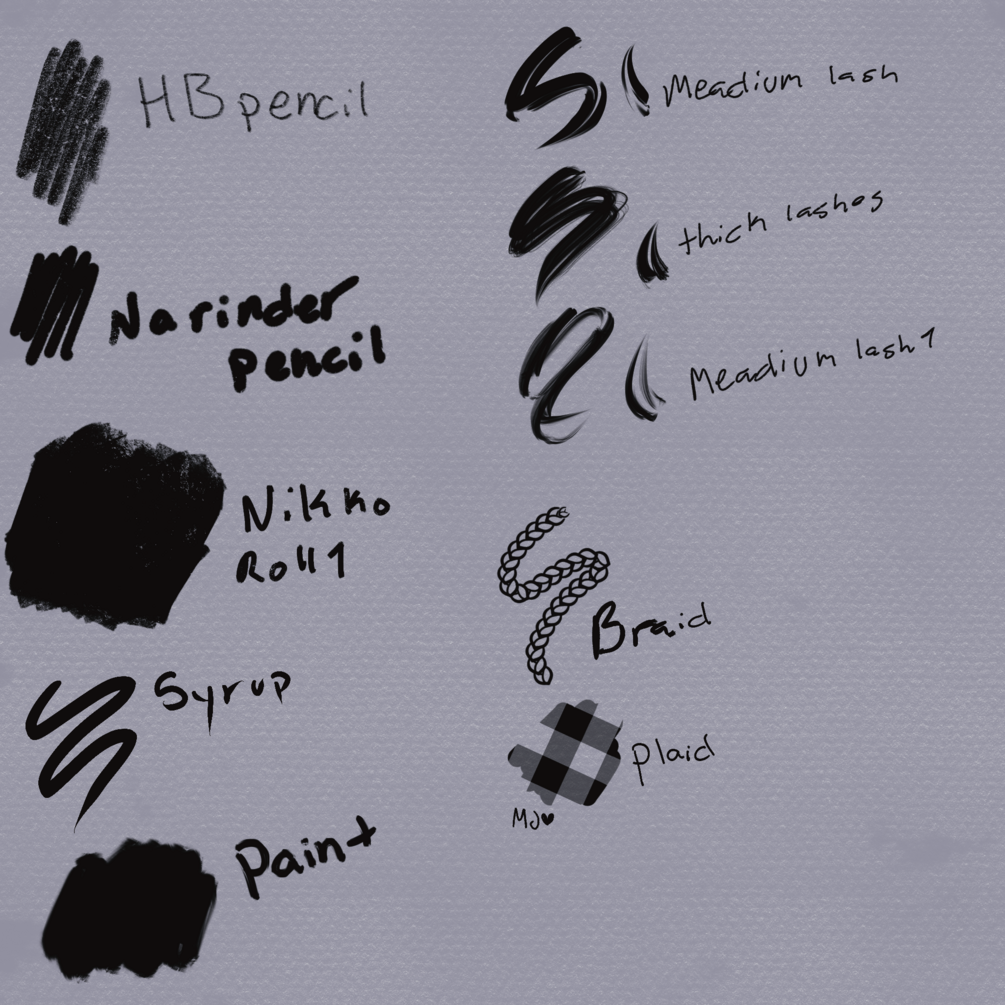 HB pencil
Narinder
pencil
Nikko
Roll 1
Syrup
Paint
Meadium lash
thick lashes
Meadium lash 1
Braid
plaid
MJ♥